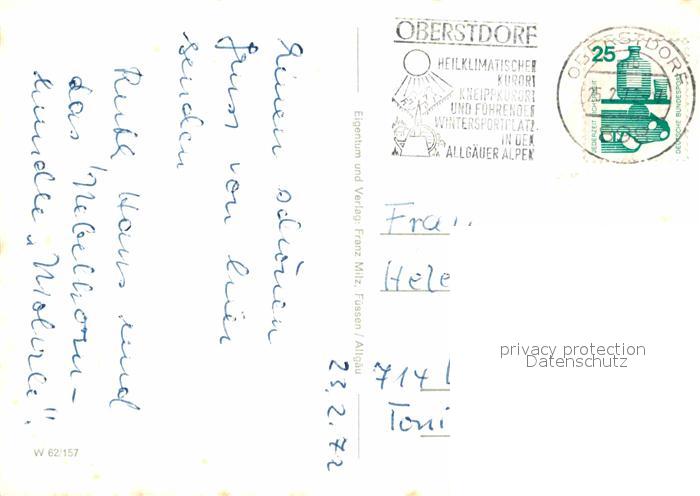 Einen schönen
Gruss von hier
senden
Ruth, Hans und
das "Nebelhorn-
mundle
23.2.72
Eigentum und Verlag: Franz Milz, Füssen/Allgäu
W 62/157
OBERSTDORF
HEILKLIMATISCHER
KURORT
KNEIPPKURORT
UND FÜHRENDER
WINTERSPORTPLATZ
IN DEN
ALLGÄUER ALPEN
OBERSTDORF
25
JEDERZEIT SICHERHEIT
DEUTSCHE BUNDESPOST
Frau
Hele
714
Toni
privacy protection
Datenschutz